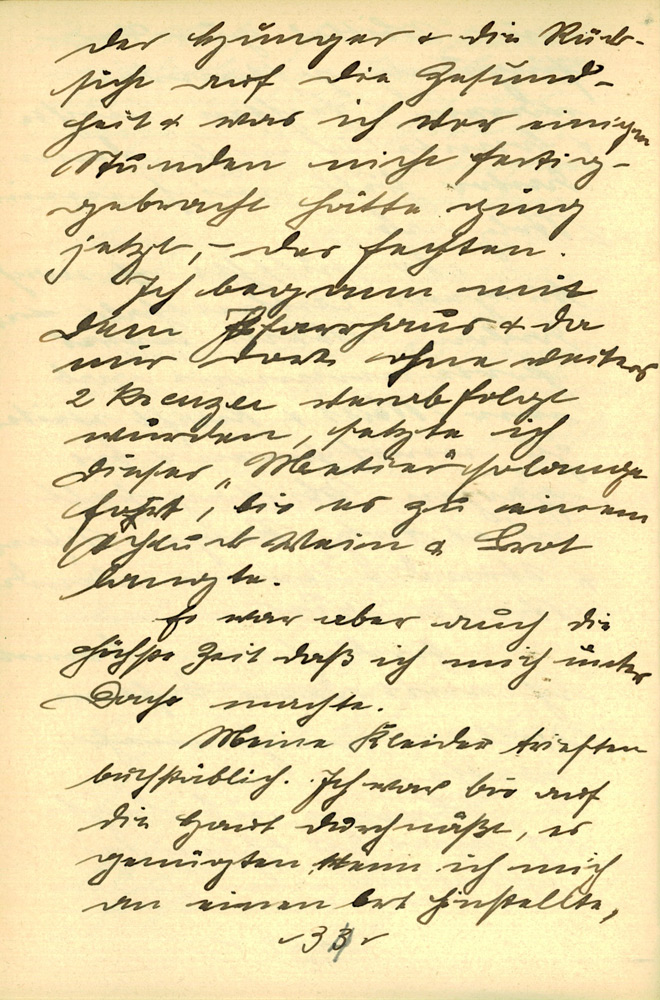 der Hunger & die Rück-
sicht auf die Gesund-
heit & was ich vor einigen
Stunden nicht fertig-
gebracht hätte ging
jetzt, – das fechten.
Ich begann mit
dem Pfarrhaus & da
mir dort ohne weiters
2 Kreuzer verabfolgt
wurden, setzte ich
dieses „Metier" solange
fort, bis es zu einem
Schluck Wein & Brot
langte.
Es war aber auch die
höchste Zeit daß ich mich unter
Dach machte.
Meine Kleider trieften
buchstäblich. Ich war bis auf
die Haut durchnäßt, es
genügten wenn ich mich
an einen Ort hinstellte,
33